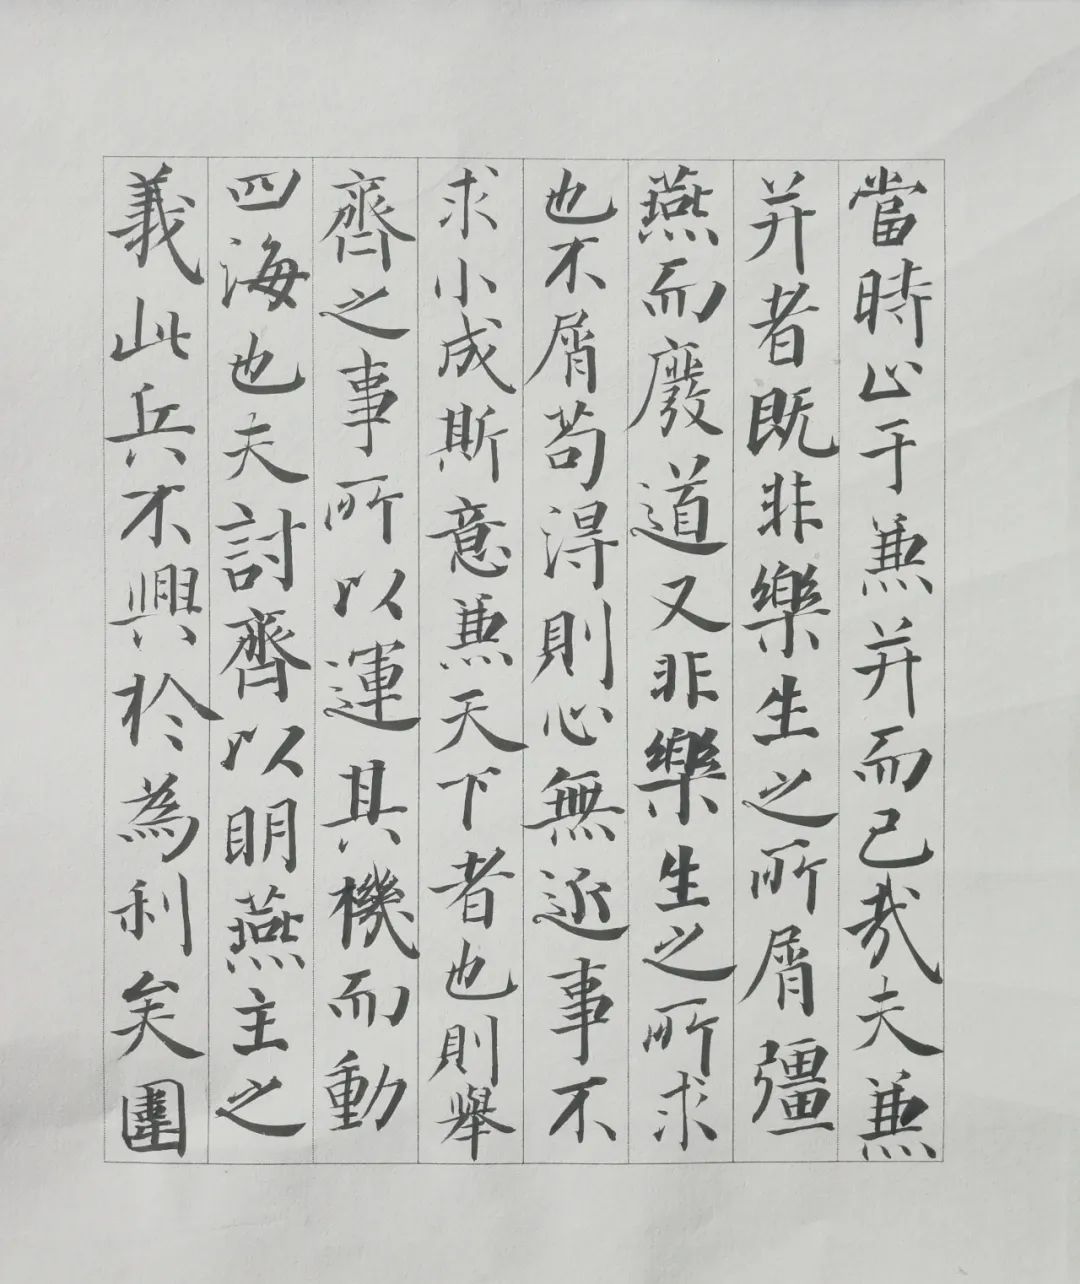 當時止于兼并而已哉夫兼
并者既非樂生之所屑彊
燕而廢道又非樂生之所求
也不屑苟得則心無近事不
求小成斯意兼天下者也則舉
齊之事所以運其機而動
四海也夫討齊以明燕主之
義此兵不興於為利矣圍